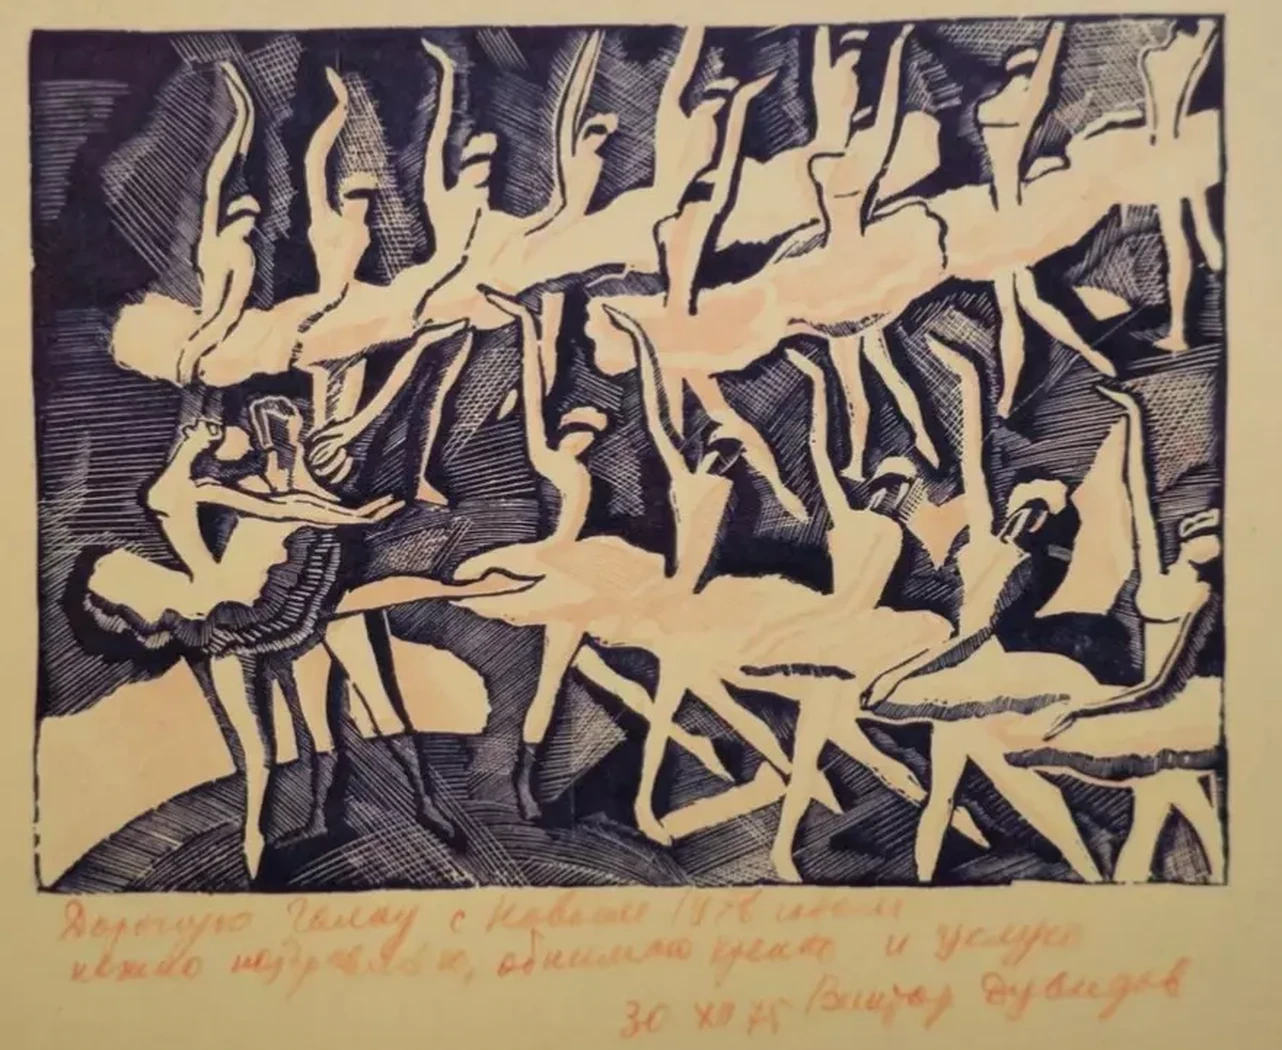 Дорогую Галку с Новым 1976 годом
нежно поздравляю, обнимаю крепко и целую
30 XII 75 Виктор Дувидов